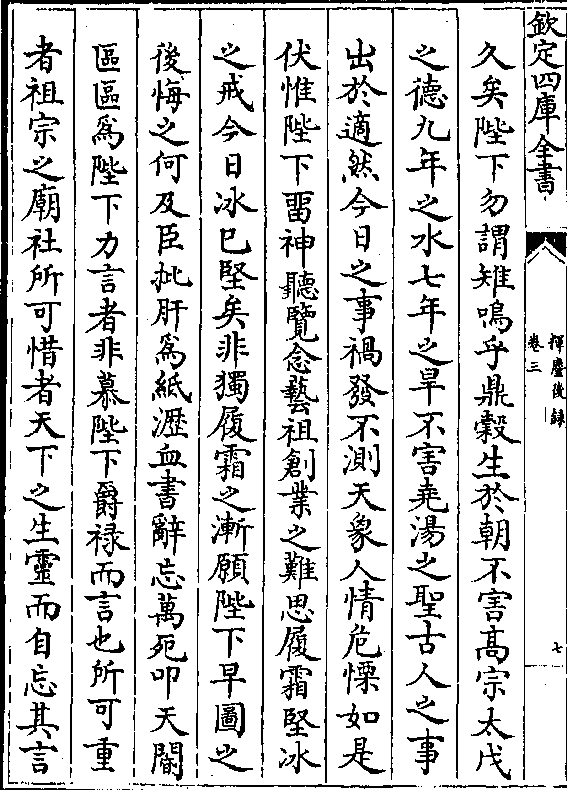 欽定四庫全書
揮麈後錄
卷三
七
久矣陛下勿謂雉鳴乎鼎糓生於朝不害髙宗太戊
之德九年之水七年之旱不害堯湯之聖古人之事
出於適然今日之事禍發不測天象人情危慄如是
伏惟陛下畱神聽覽念藝祖創業之難思履霜堅冰
之戒今日冰已堅矣非獨履霜之漸願陛下早圖之
後悔之何及臣批肝爲紙瀝血書辭忘萬死叩天閽
區區爲陛下力言者非慕陛下爵禄而言也所可重
者祖宗之廟社所可惜者天下之生靈而自忘其言